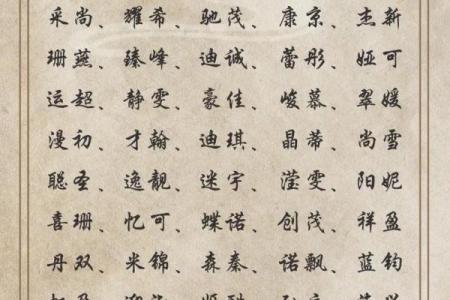 采尚、耀希、驰茂、康京、杰新
珊燕、臻峰、迪诚、蕾彤、娅可
运超、静雯、豪佳、峻慕、翠媛
漫初、才翰、迪琪、晶蒂、尚雪
聪圣、逸靓、迷宇、滢雯、阳妮
喜珊、忆可、蝶诺、创茂、祥盈
丹双、米锦、森秦、诺飘、蓝钧